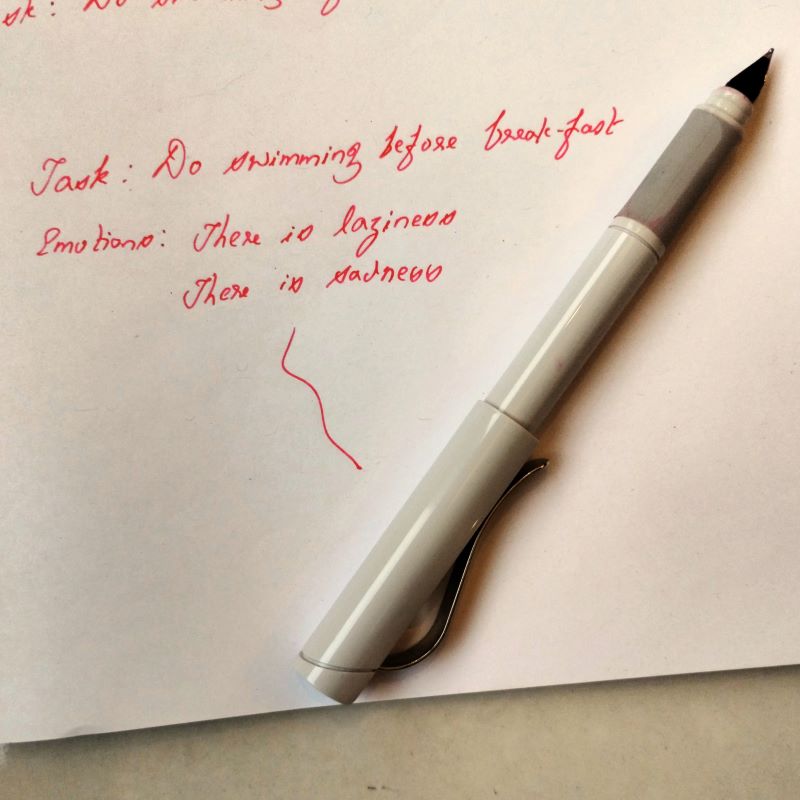 Task: Do swimming before break-fast
Emotions: There is laziness
There is sadness